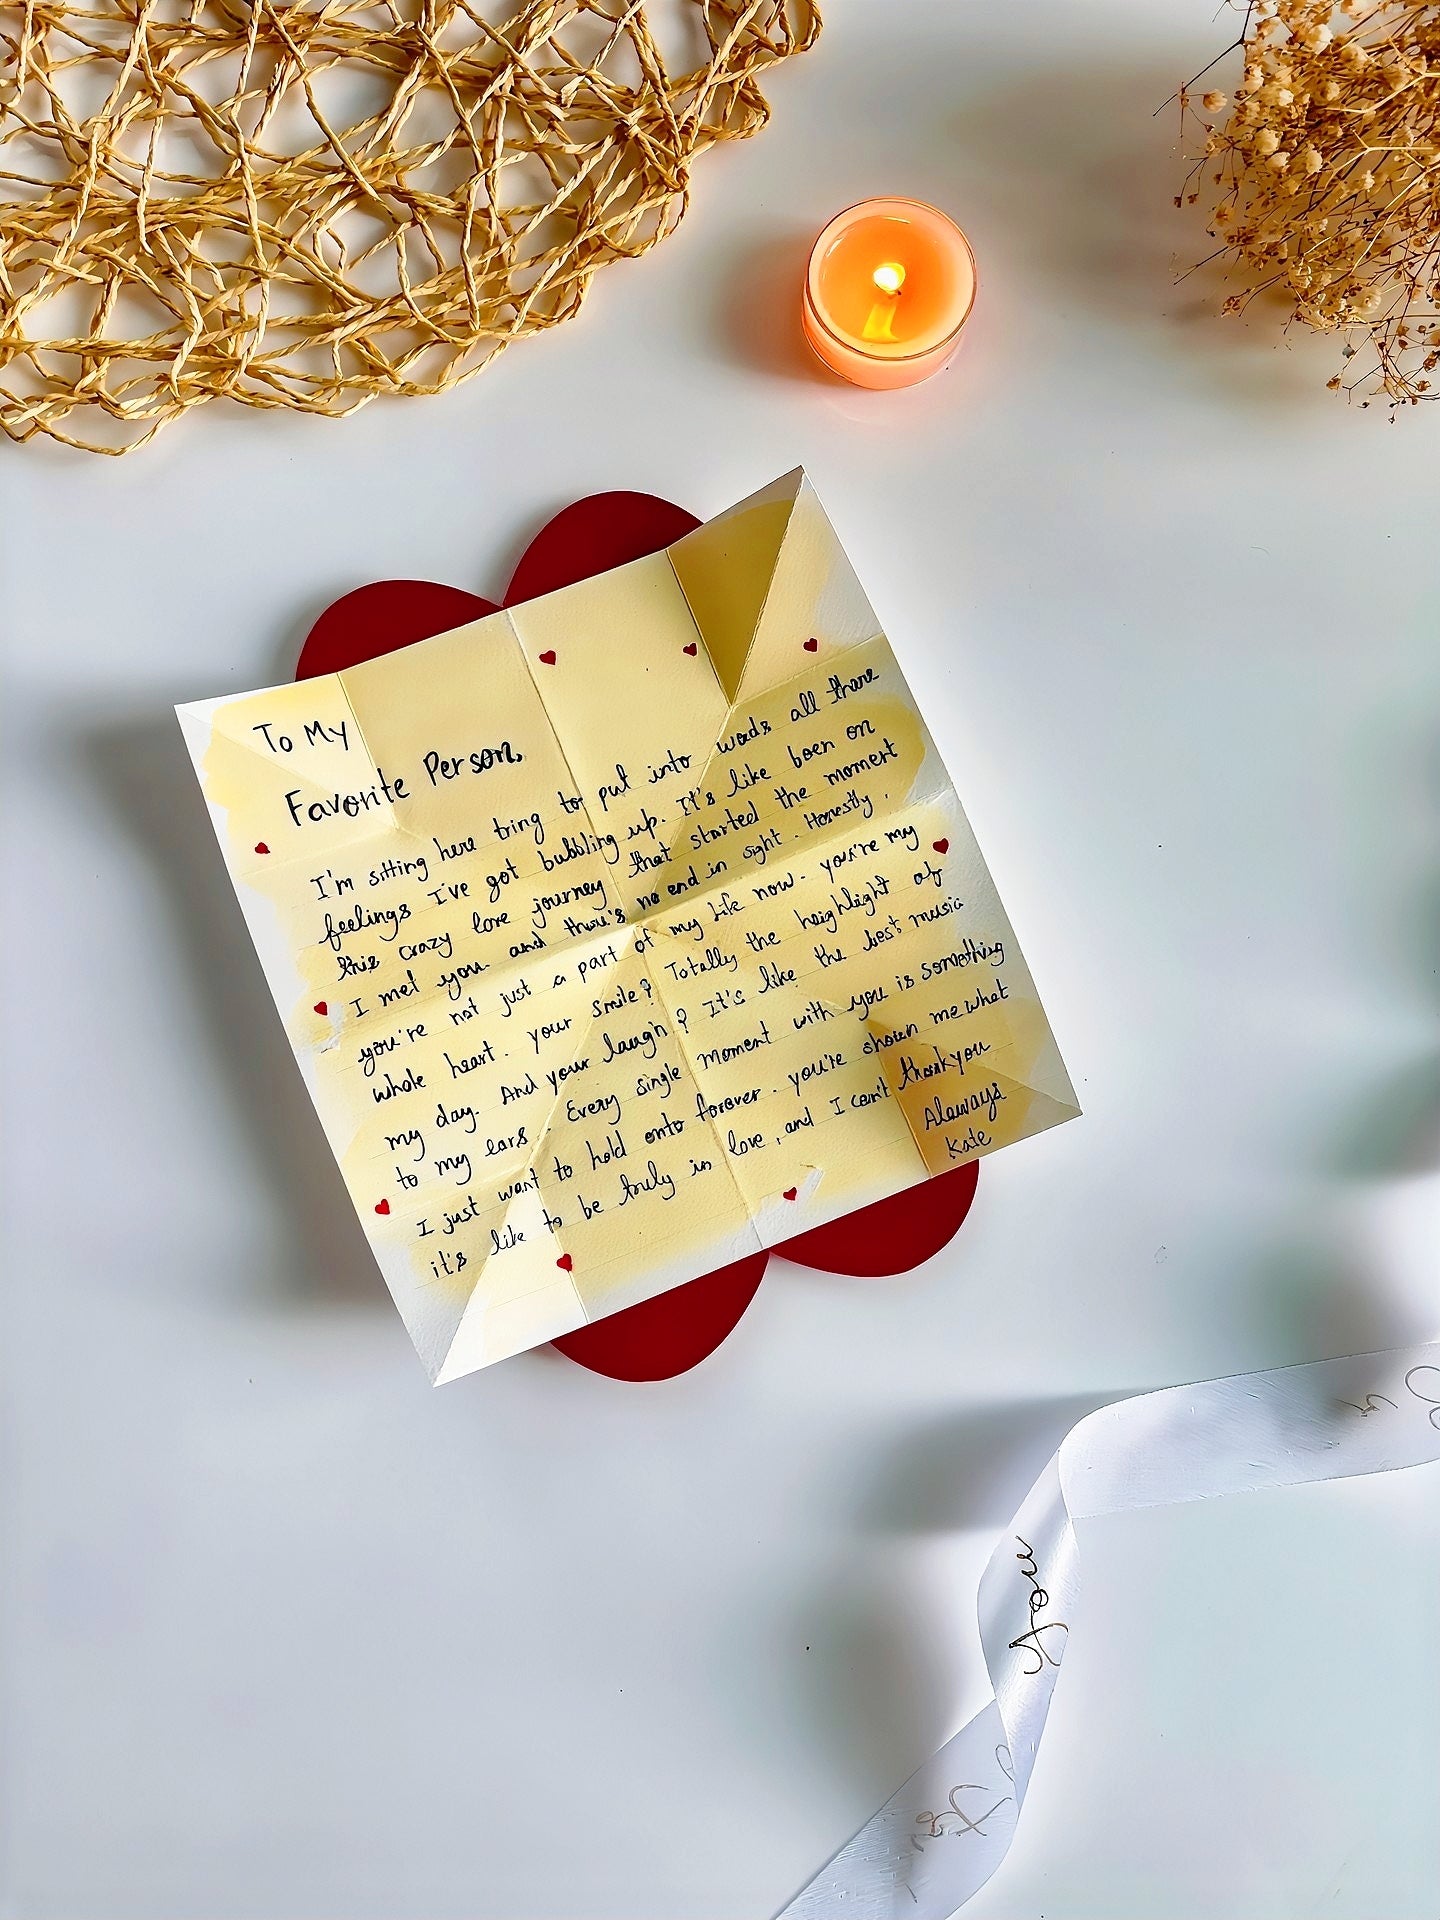 To My
Favorite Person,
I'm sitting here tring to put into words all there
feelings I've got bubbling up. It's like been on
this crazy love journey that started the moment
I met you. and there's no end in sight. Honestly,
you're not just a part of my life now. you're my
whole heart. your smile? Totally the heighlight of
my day. And your laugh? It's like the best music
to my ears. Every single moment with you is something
I just want to hold onto forever. you're shown me what
it's like to be truly in love, and I can't thankyou
Always
Kate
You